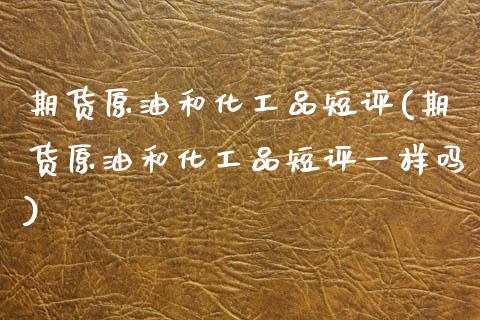 期货原油和化工品短评(期
货原油和化工品短评一样吗
)